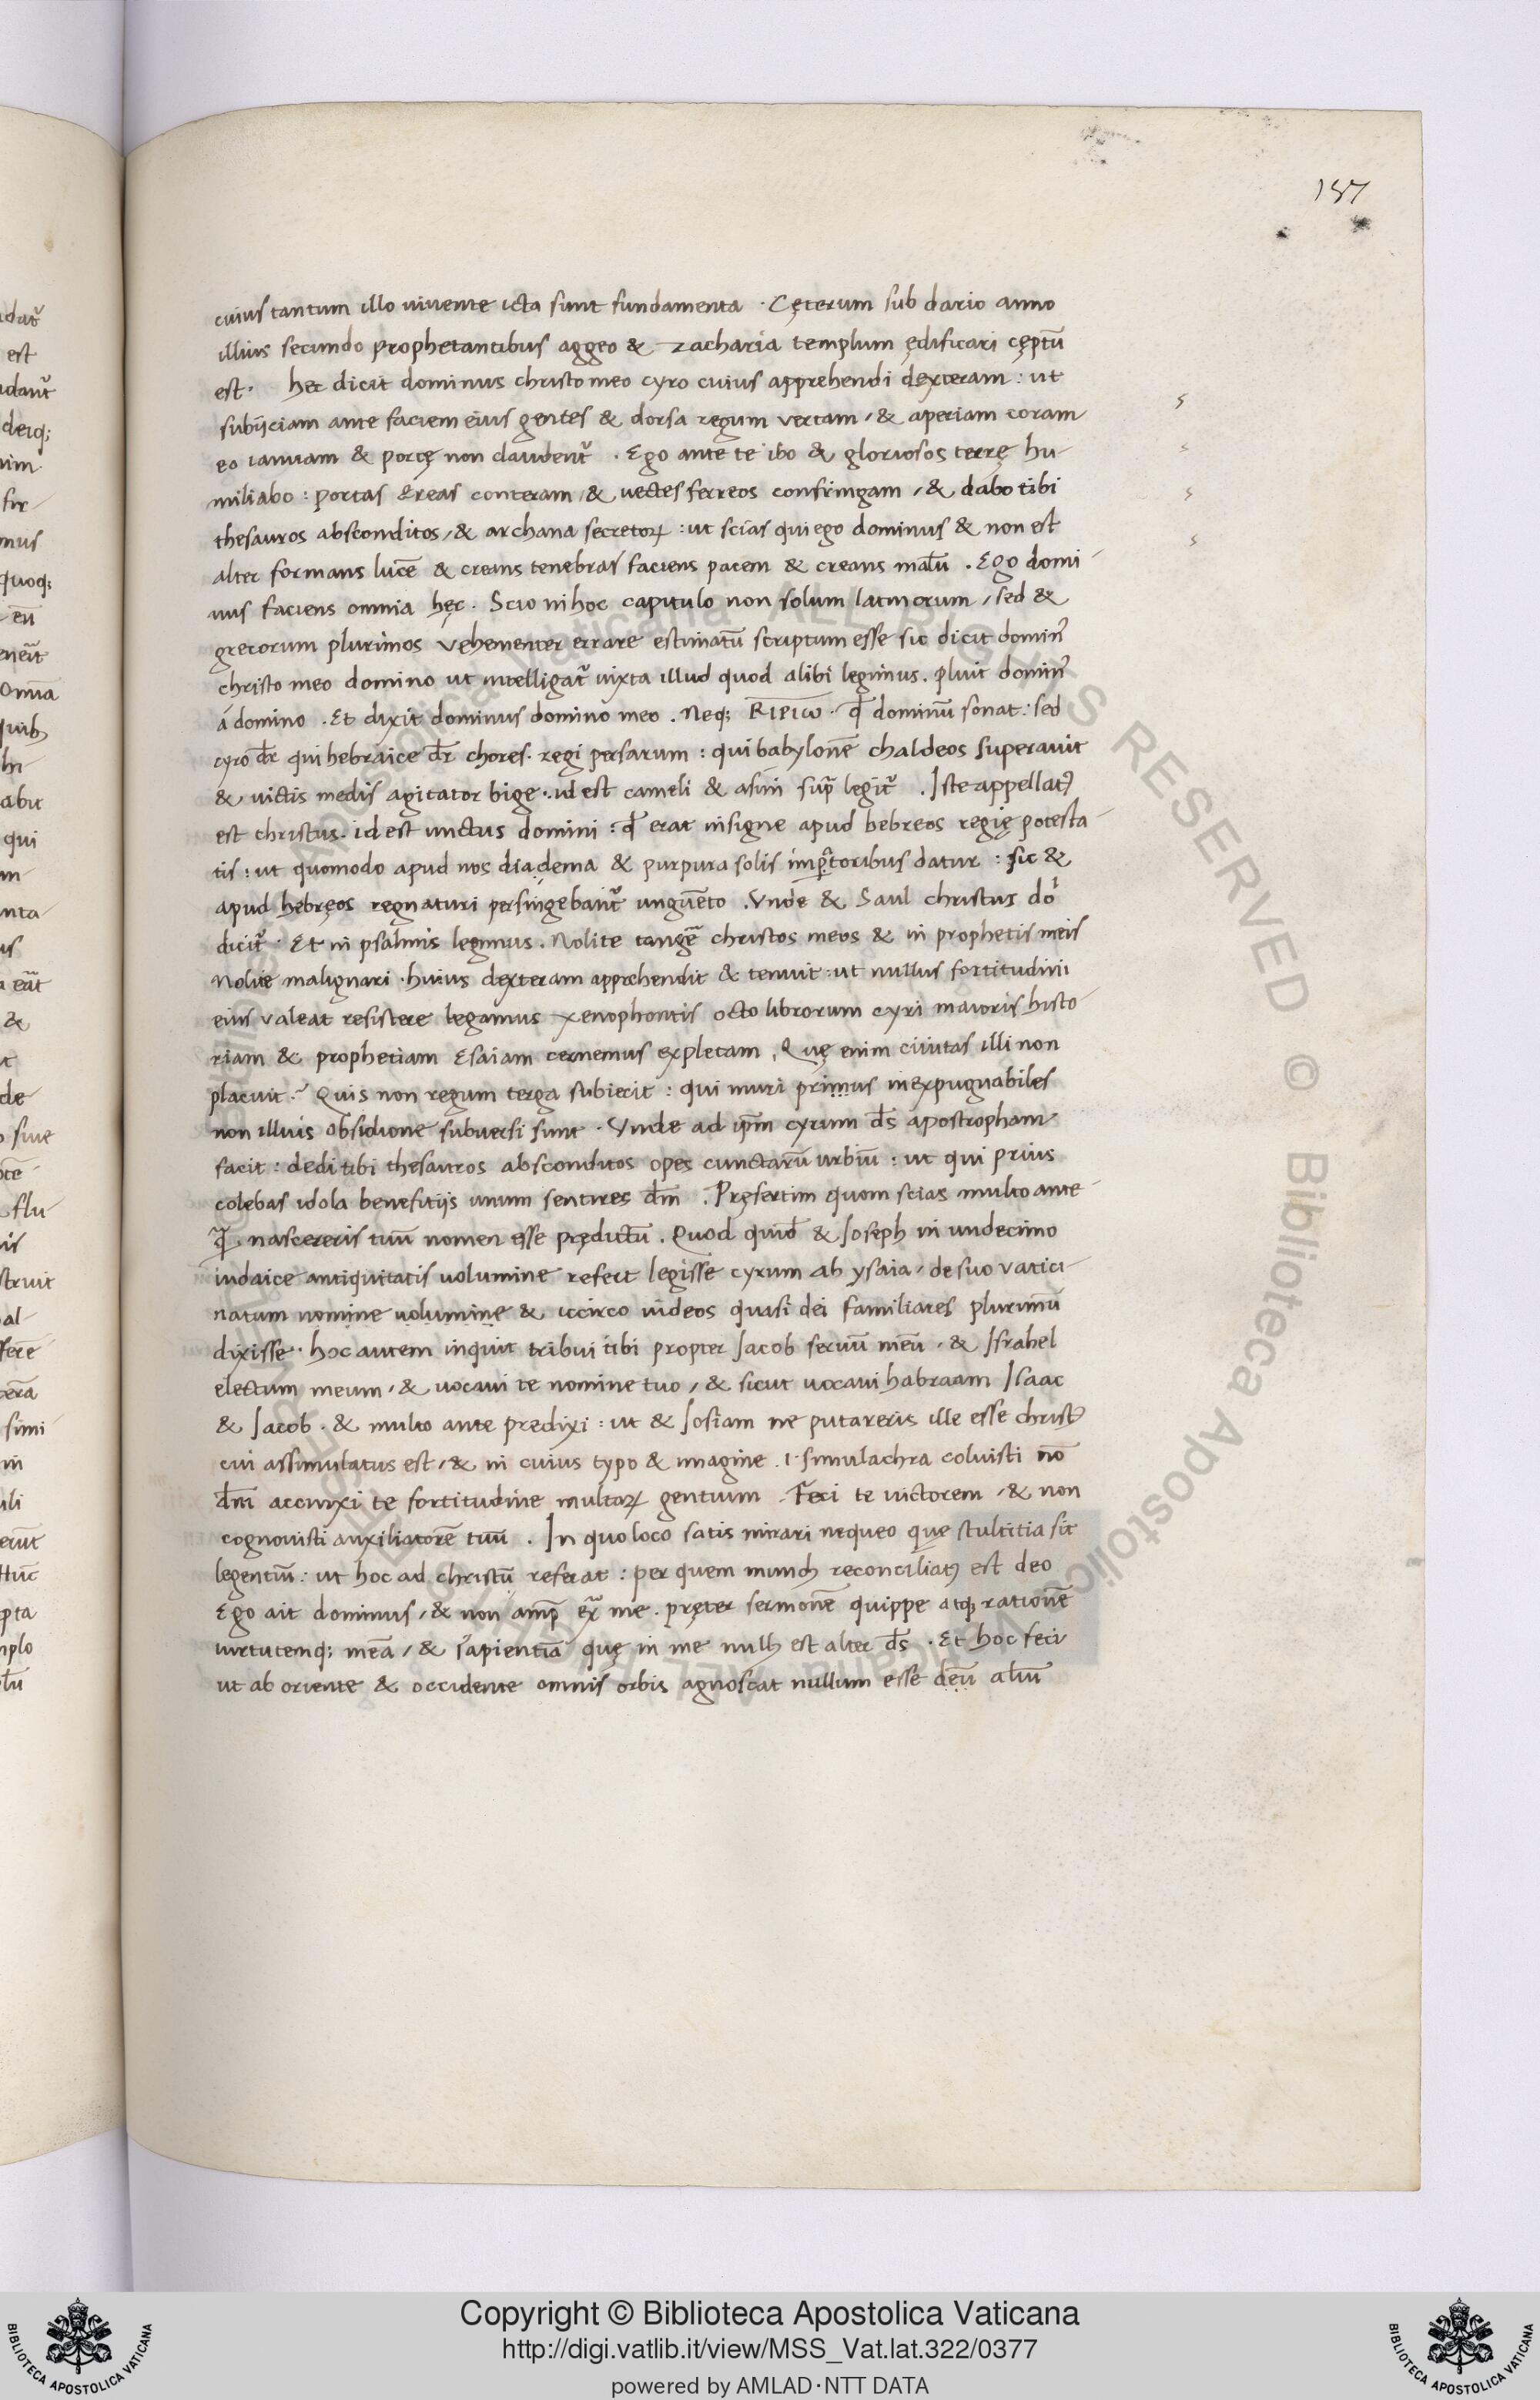 187
cuius tantum illo uiuente icta sunt fundamenta · Cęterum sub dario anno
illius secundo prophetantibus aggeo & zacharia templum ędificari cęptū
est · hec dicit dominus christo meo cyro cuius apprehendi dexteram : ut
subijciam ante faciem eius gentes & dorsa regum vertam / & aperiam coram
eo ianuam & portę non claudent᷑ . Ego ante te ibo & gloriosos terrę hu-
miliabo : portas ęreas conteram / & uectes ferreos confringam / & dabo tibi
thesauros absconditos / & archana secretoꝝ : ut scias qui ego dominus & non est
alter formans lucē & creans tenebras faciens pacem & creans malū . Ego domi-
nus faciens omnia hęc . Scio in hoc capitulo non solum latinorum / sed &
grecorum plurimos vehementer errare estimatū scriptum esse sic dicit domin᷒
christo meo domino ut intelligat᷑ iuxta illud quod alibi legimus . pluit domin᷒
a domino . Et dixit dominus domino meo . Neq; κιριω · qđ dominū sonat : sed
cyro dr̄ qui hebraice dr̄ chores . regi persarum : qui babylonē chaldeos superauit
& uictis medis agitator bige · id est cameli & asini supᷓ legit᷑ . Iste appellatꝰ
est christus . id est unctus domini : qđ erat insigne apud hebreos regię potesta-
tis : ut quomodo apud nos diadema & purpura solis imꝑatoribus datur : sic &
apud hebręos regnaturi persingebant᷑ unguēto . Vnde & Saul christus do͛
dicit᷑ · Et in psalmis legimus . Nolite tangē christos meos & in prophetis meis
Nolite malignari . huius dexteram apprehendit & tenuit : ut nullus fortitudini
eius valeat resistere legamus xenophontis octo librorum cyri maioris histo-
riam & prophetiam Esaiam cernemus expletam , Quę enim ciuitas illi non
placuit ? Quis non regum terga subierit : qui muri primus inexpugnabiles
non illius obsidione subuersi sunt . Vnde ad ip̄m cyrum ds̄ apostropham
facit : dedi tibi thesauros absconditos opes cunctarū urbiū : ut qui prius
colebas idola benefitijs unum sentires dm̄ . Pręsertim quom scias multo ante
qᷓ nascereris tuū nomen esse pręductū . Quod quid̄ & Ioseph in undecimo
iudaice antiquitatis uolumine refert legisse cyrum ab ysaia / de suo vatici-
natum nomine uolumine & iccirco iudeos quasi dei familiares plurimū
dixisse · hoc autem inquit tribui tibi propter Iacob seruū meū / & Israhel
electum meum / & uocaui te nomine tuo / & sicut uocaui habraam Isaac
& Iacob . & multo ante predixi : ut & Iosiam ne putareris ille esse christꝰ
cui assimulatus est / & in cuius typo & imagine . i · simulachra coluisti nō
dm̄ accinxi te fortitudine multaꝝ gentium . Feci te uictorem / & non
cognouisti auxiliatorē tuū . In quo loco satis mirari nequeo quę stultitia sit
legentiū : ut hoc ad christū referat : per quem mundꝰ reconciliatꝰ est deo
Ego ait dominus / & non amp̄ exᷓ me . pręter sermonē quippe atq; rationē
uirtutemq; meā / & sapientiā quę in me nullꝰ est alter ds̄ . Et hoc feci
ut ab oriente & occidente omnis orbis agnoscat nullum esse deū aliū
Copyright © Biblioteca Apostolica Vaticana
http://digi.vatlib.it/view/MSS_Vat.lat.322/0377
powered by AMLAD·NTT DATA
BIBLIOTECA APOSTOLICA VATICANA
BIBLIOTECA APOSTOLICA VATICANA